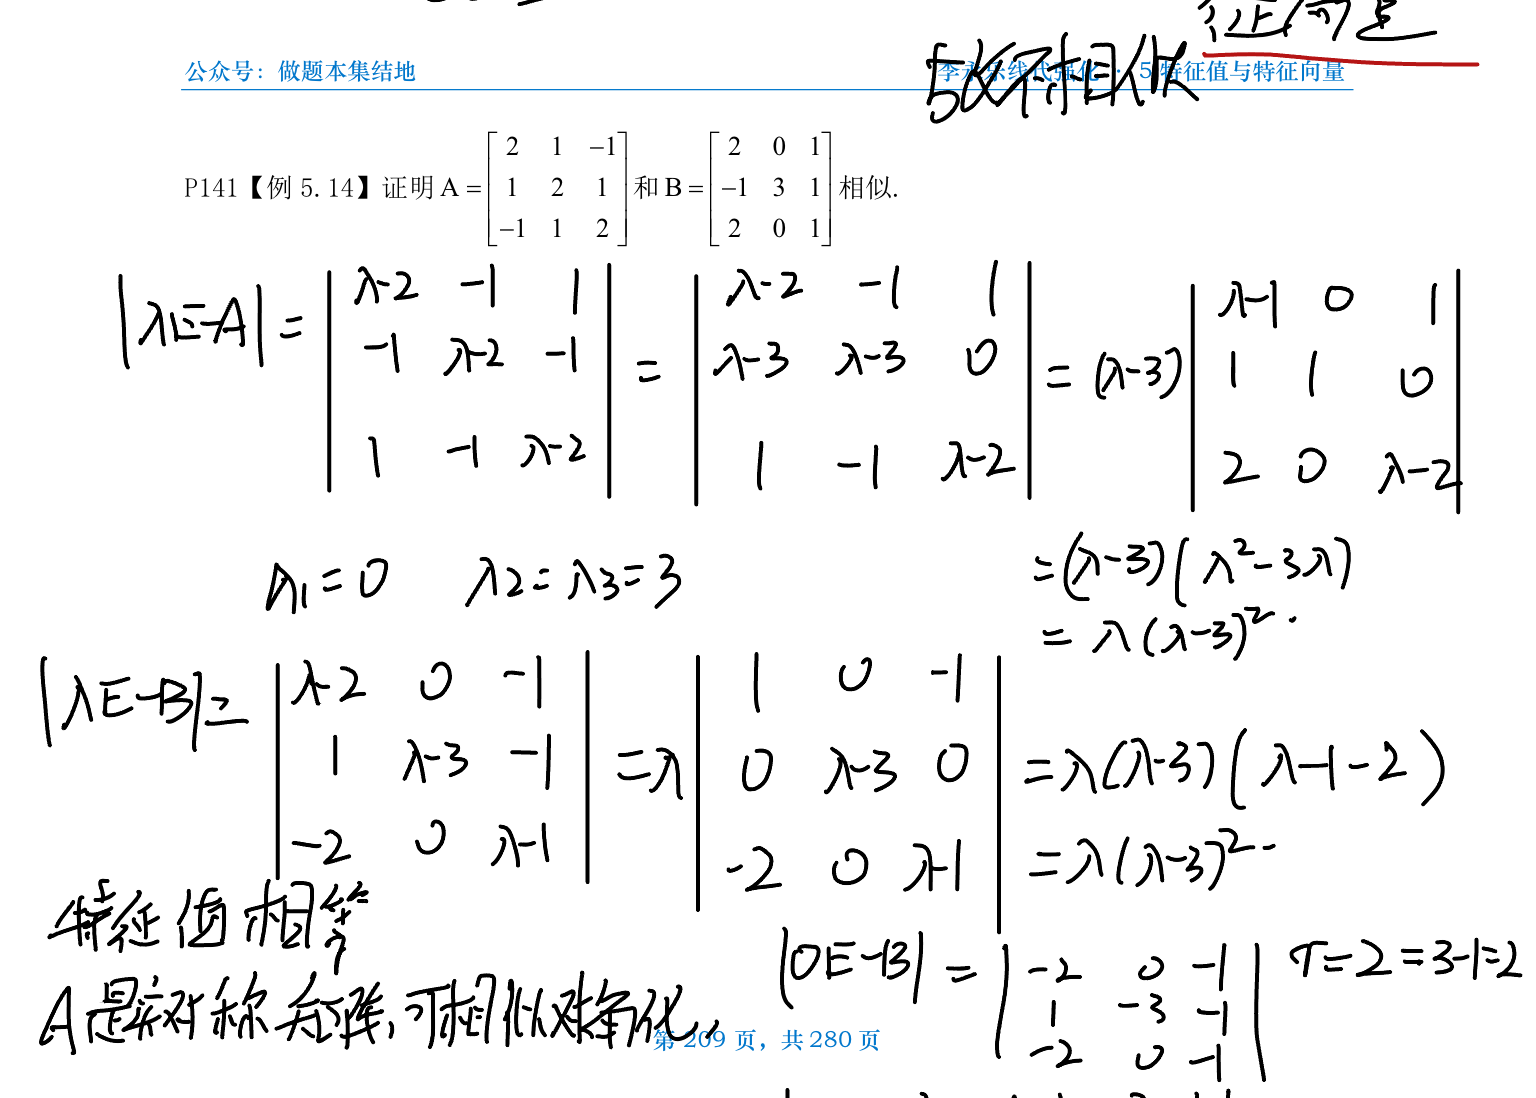 征向量
与B不相似
公众号：做题本集结地 李永乐线代强化 · 5 特征值与特征向量
P141【例 5.14】证明 A = [2 1 −1; 1 2 1; −1 1 2] 和 B = [2 0 1; −1 3 1; 2 0 1] 相似.
|λE-A| = |λ-2 -1 1; -1 λ-2 -1; 1 -1 λ-2| = |λ-2 -1 1; λ-3 λ-3 0; 1 -1 λ-2| = (λ-3) |λ-1 0 1; 1 1 0; 2 0 λ-2|
= (λ-3)(λ²-3λ)
λ1=0 λ2=λ3=3
= λ(λ-3)².
|λE-B| = |λ-2 0 -1; 1 λ-3 -1; -2 0 λ-1| = λ |1 0 -1; 0 λ-3 0; -2 0 λ-1| = λ(λ-3)(λ-1-2)
= λ(λ-3)²
特征值相等
|0E-B| = |-2 0 -1; 1 -3 -1; -2 0 -1| r=2=3-1=2
A是实对称矩阵,可相似对角化,
第 209 页，共 280 页